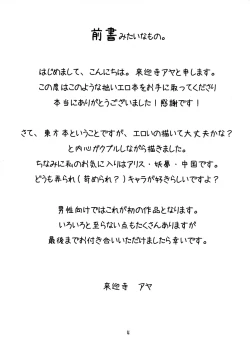 前書みたいなもの。
はじめまして、こんにちは。来迎寺アヤと申します。
この度はこのような拙いエロ本をお手に取ってくださり
本当にありがとうございました！感謝です！
さて、東方本ということですが、エロいの描いて大丈夫かな？
と内心ガクブルしながら描きました。
ちなみに私のお気に入りはアリス・妖夢・中国です。
どうも弄られ（苛められ？）キャラが好きらしいですよ？
男性向けではこれが初の作品となります。
いろいろと至らない点もたくさんありますが
最後までお付き合いいただけましたら幸いです。
来迎寺　アヤ